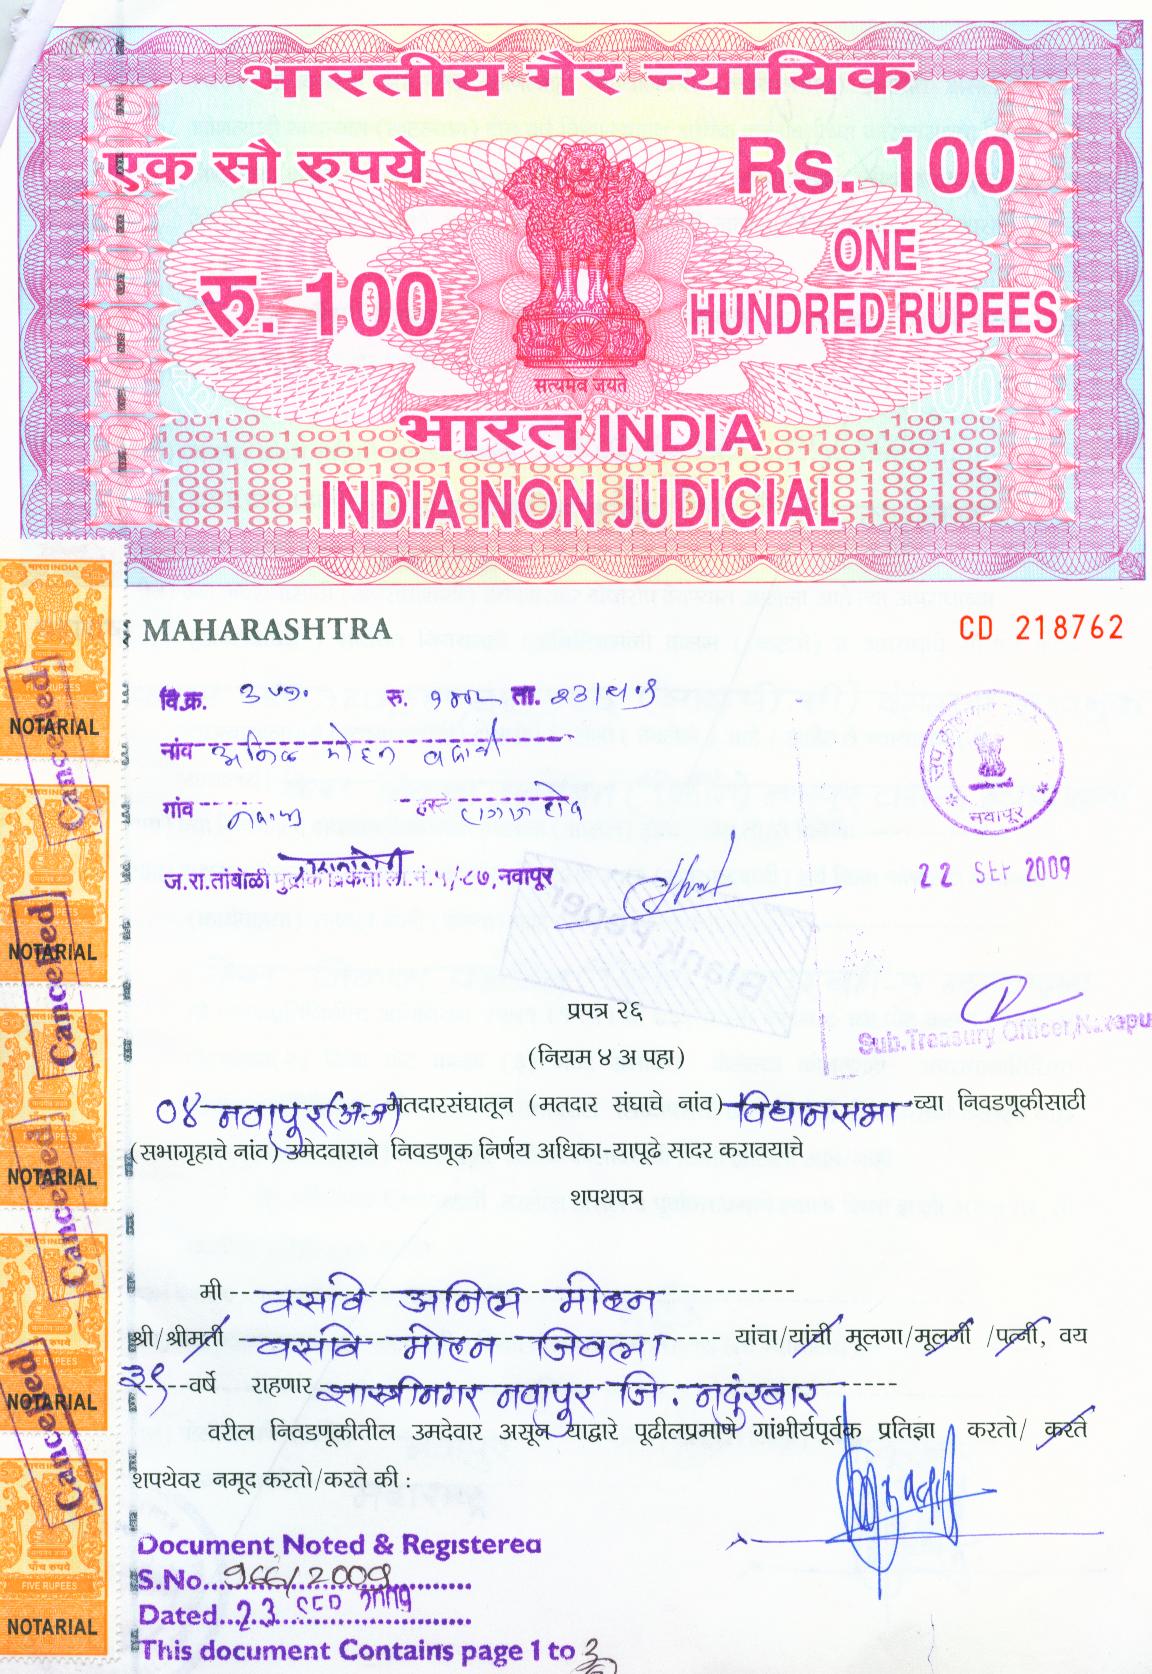 भारतीय गैर न्यायिक
एक सौ रुपये
Rs. 100
रु. 100
ONE
HUNDRED RUPEES
सत्यमेव जयते
भारत INDIA
INDIA NON JUDICIAL
MAHARASHTRA
CD 218762
वि.क्र. रु. ता.
नांव अनिल मोहन वसावे
गांव हस्ते
ज.रा.तांबोळी मुद्रांक विक्रेता ला.नं.५/८७, नवापूर
नवापूर
22 SEP 2009
Sub.Treasury Officer,Navapu
Blank Paper
प्रपत्र २६
(नियम ४ अ पहा)
०४ नवापुर (अ.ज) मतदारसंघातून (मतदार संघाचे नांव) विधानसभा च्या निवडणूकीसाठी
(सभागृहाचे नांव) उमेदवाराने निवडणूक निर्णय अधिका-यापूढे सादर करावयाचे
शपथपत्र
मी वसावे अनिल मोहन
श्री/श्रीमती वसावे मोहन जिवला यांचा/यांची मूलगा/मूलगी /पत्नी, वय
३९ वर्षे राहणार शास्त्रीनगर नवापुर जि. नदुंरबार
वरील निवडणूकीतील उमदेवार असून याद्वारे पूढीलप्रमाणे गांभीर्यपूर्वक प्रतिज्ञा करतो/ करते
शपथेवर नमूद करतो/करते की :
Document Noted & Registered
S.No. 966/2009
Dated 23 SEP 2009
This document Contains page 1 to 3
भारत INDIA
पाँच रुपये
FIVE RUPEES
NOTARIAL
Cancelled
NOTARIAL
Cancelled
भारत INDIA
NOTARIAL
Cancelled
भारत INDIA
FIVE RUPEES
NOTARIAL
Cancelled
भारत INDIA
पाँच रुपये
FIVE RUPEES
NOTARIAL